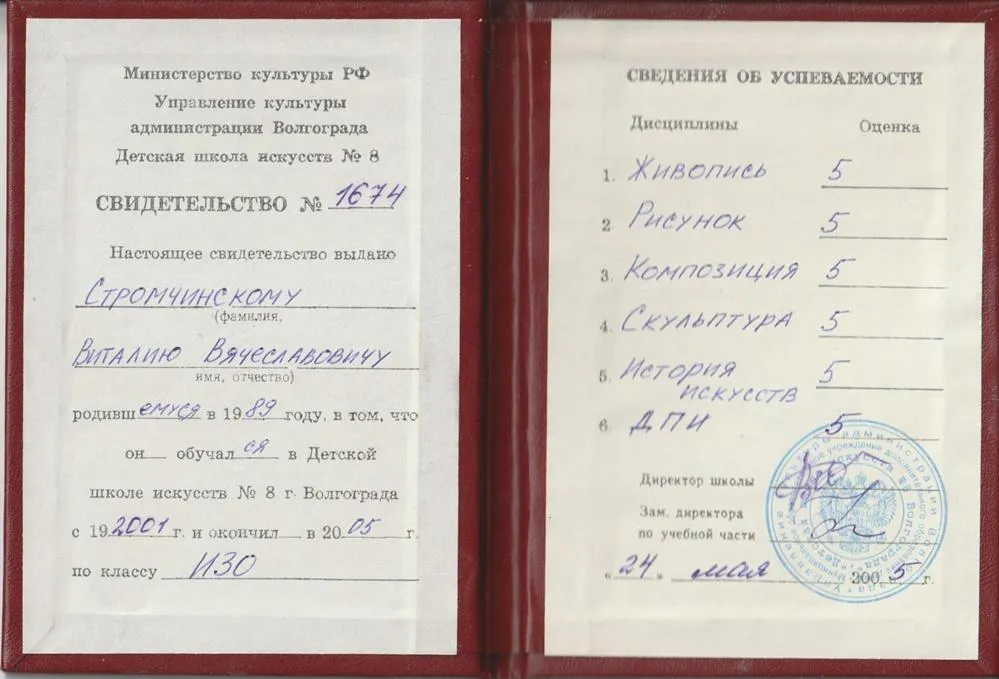 Министерство культуры РФ
Управление культуры
администрации Волгограда
Детская школа искусств № 8
СВИДЕТЕЛЬСТВО № 1674
Настоящее свидетельство выдано
Стромчинскому
(фамилия,
Виталию Вячеславовичу
имя, отчество)
родившемуся в 1989 году, в том, что
он обучался в Детской
школе искусств № 8 г. Волгограда
с 192001 г. и окончил в 2005 г.
по классу ИЗО
СВЕДЕНИЯ ОБ УСПЕВАЕМОСТИ
Дисциплины Оценка
1. Живопись 5
2. Рисунок 5
3. Композиция 5
4. Скульптура 5
5. История 5
искусств
6. ДПИ 5
Директор школы
Зам. директора
по учебной части
«24» мая 2005 г.